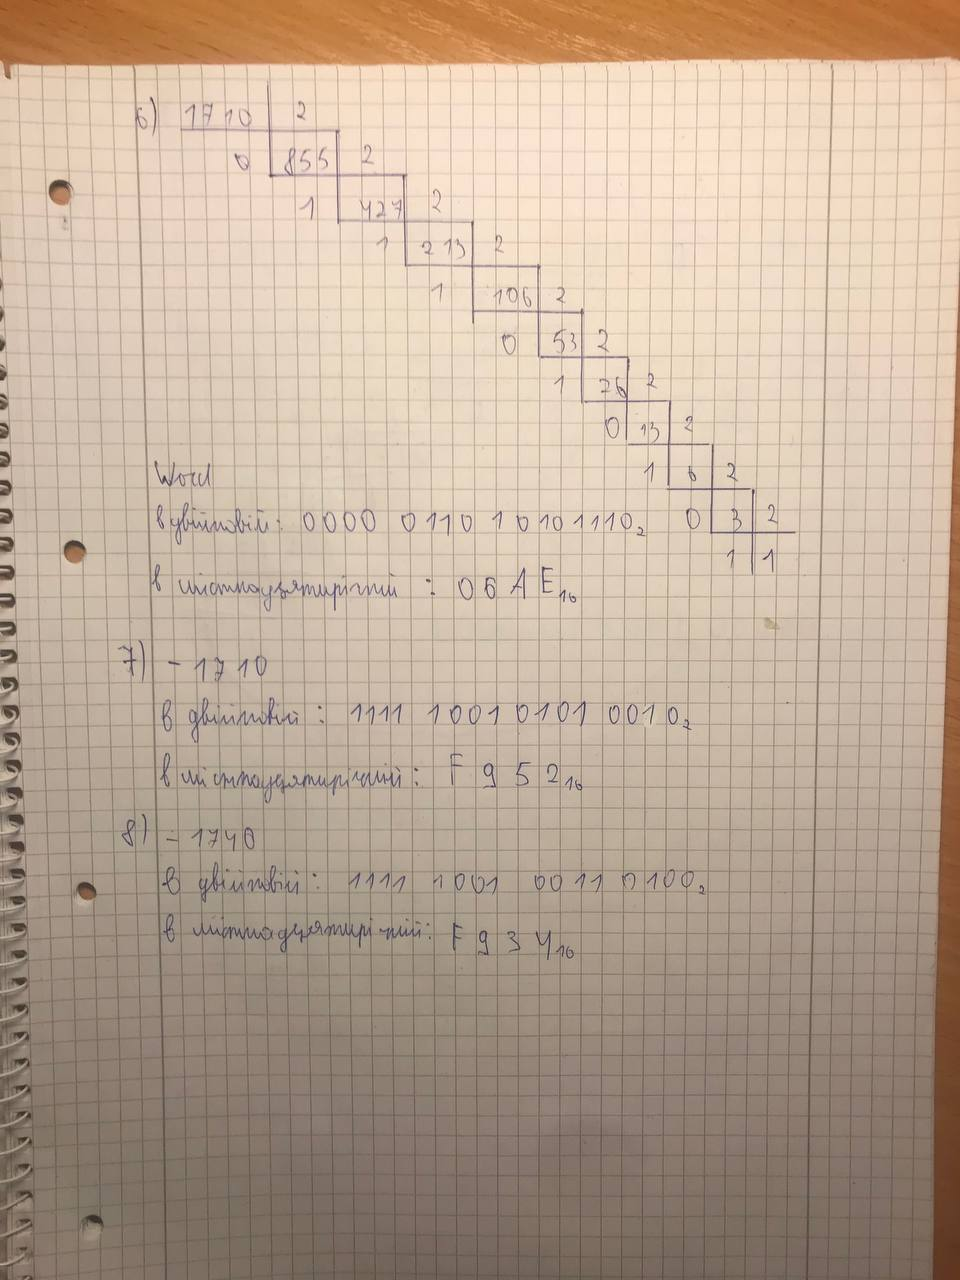 6) 1710 2
0 855 2
1 427 2
1 213 2
1 106 2
0 53 2
1 26 2
0 13 2
1 6 2
Word
в двійковій: 0000 0110 1010 1110₂ 0 3 2
1 1
в шістнадцятирічній : 06AE₁₆
7) - 1710
в двійковій : 1111 1001 0101 0010₂
в шістнадцятирічній : F952₁₆
8) - 1740
в двійковій : 1111 1001 0011 0100₂
в шістнадцятирічній : F934₁₆